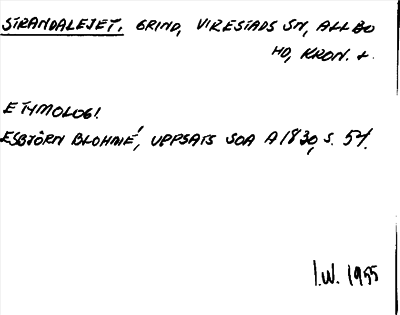 STRANDALEJET. GRIND, VIRESTADS SN, ALLBO
HD, KRON. L.
ETYMOLOGI.
ESBJÖRN BLOHMÉ, UPPSATS SOA A1830, S. 54.
I.W. 1955